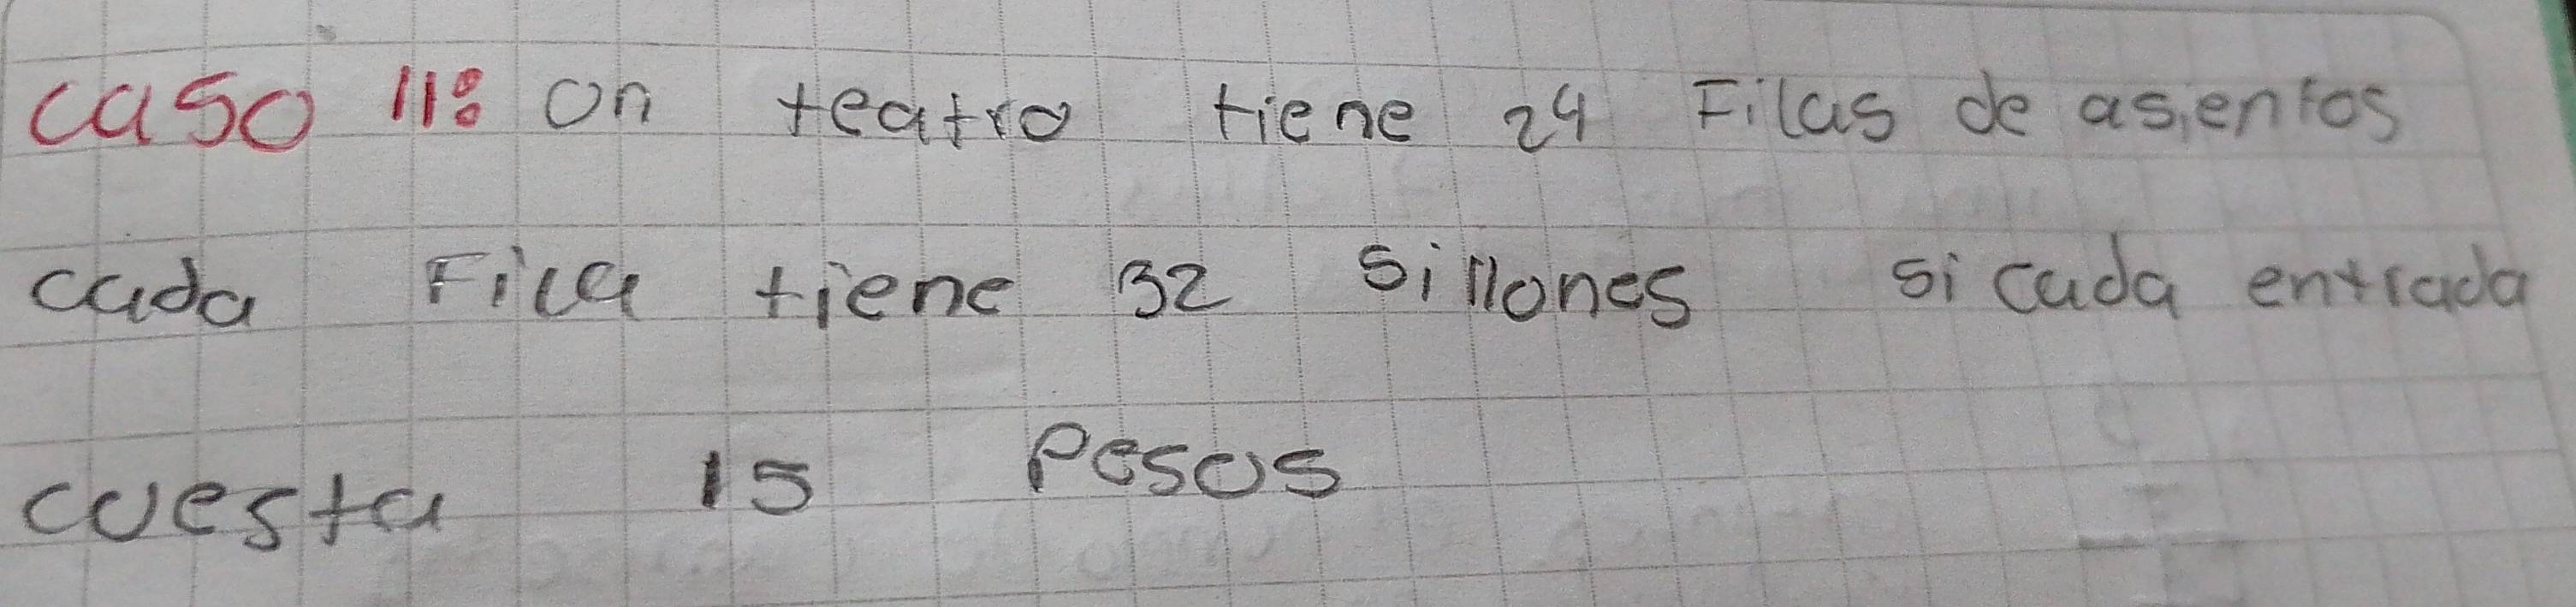 caso 11: un teatro tiene 24 Filas de asientos
cada Fila tiene 32 sillones si cada entrada
cuesta 15 Pesos